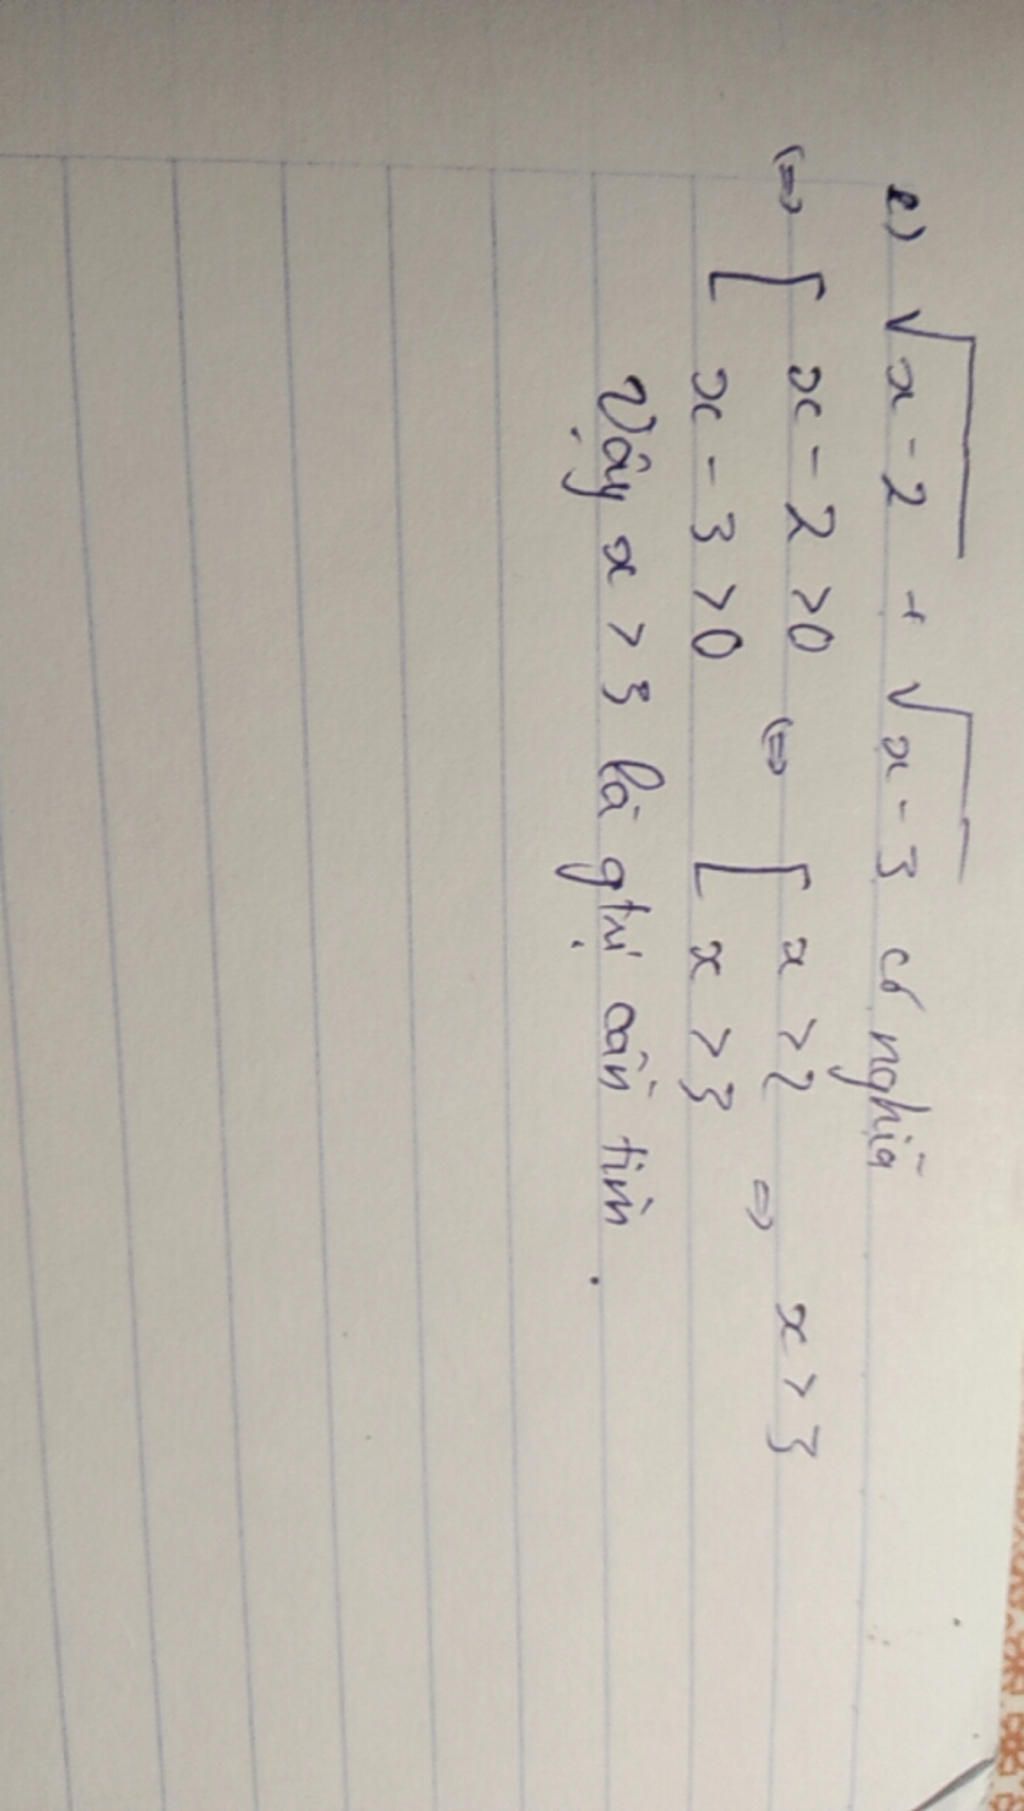 e) √x-2 + √x-3 có nghĩa
⇔ [ x-2 >0 ⇔ [ x >2 ⇒ x>3
x-3 >0 x >3
Vậy x > 3 là gtrị cần tìm .